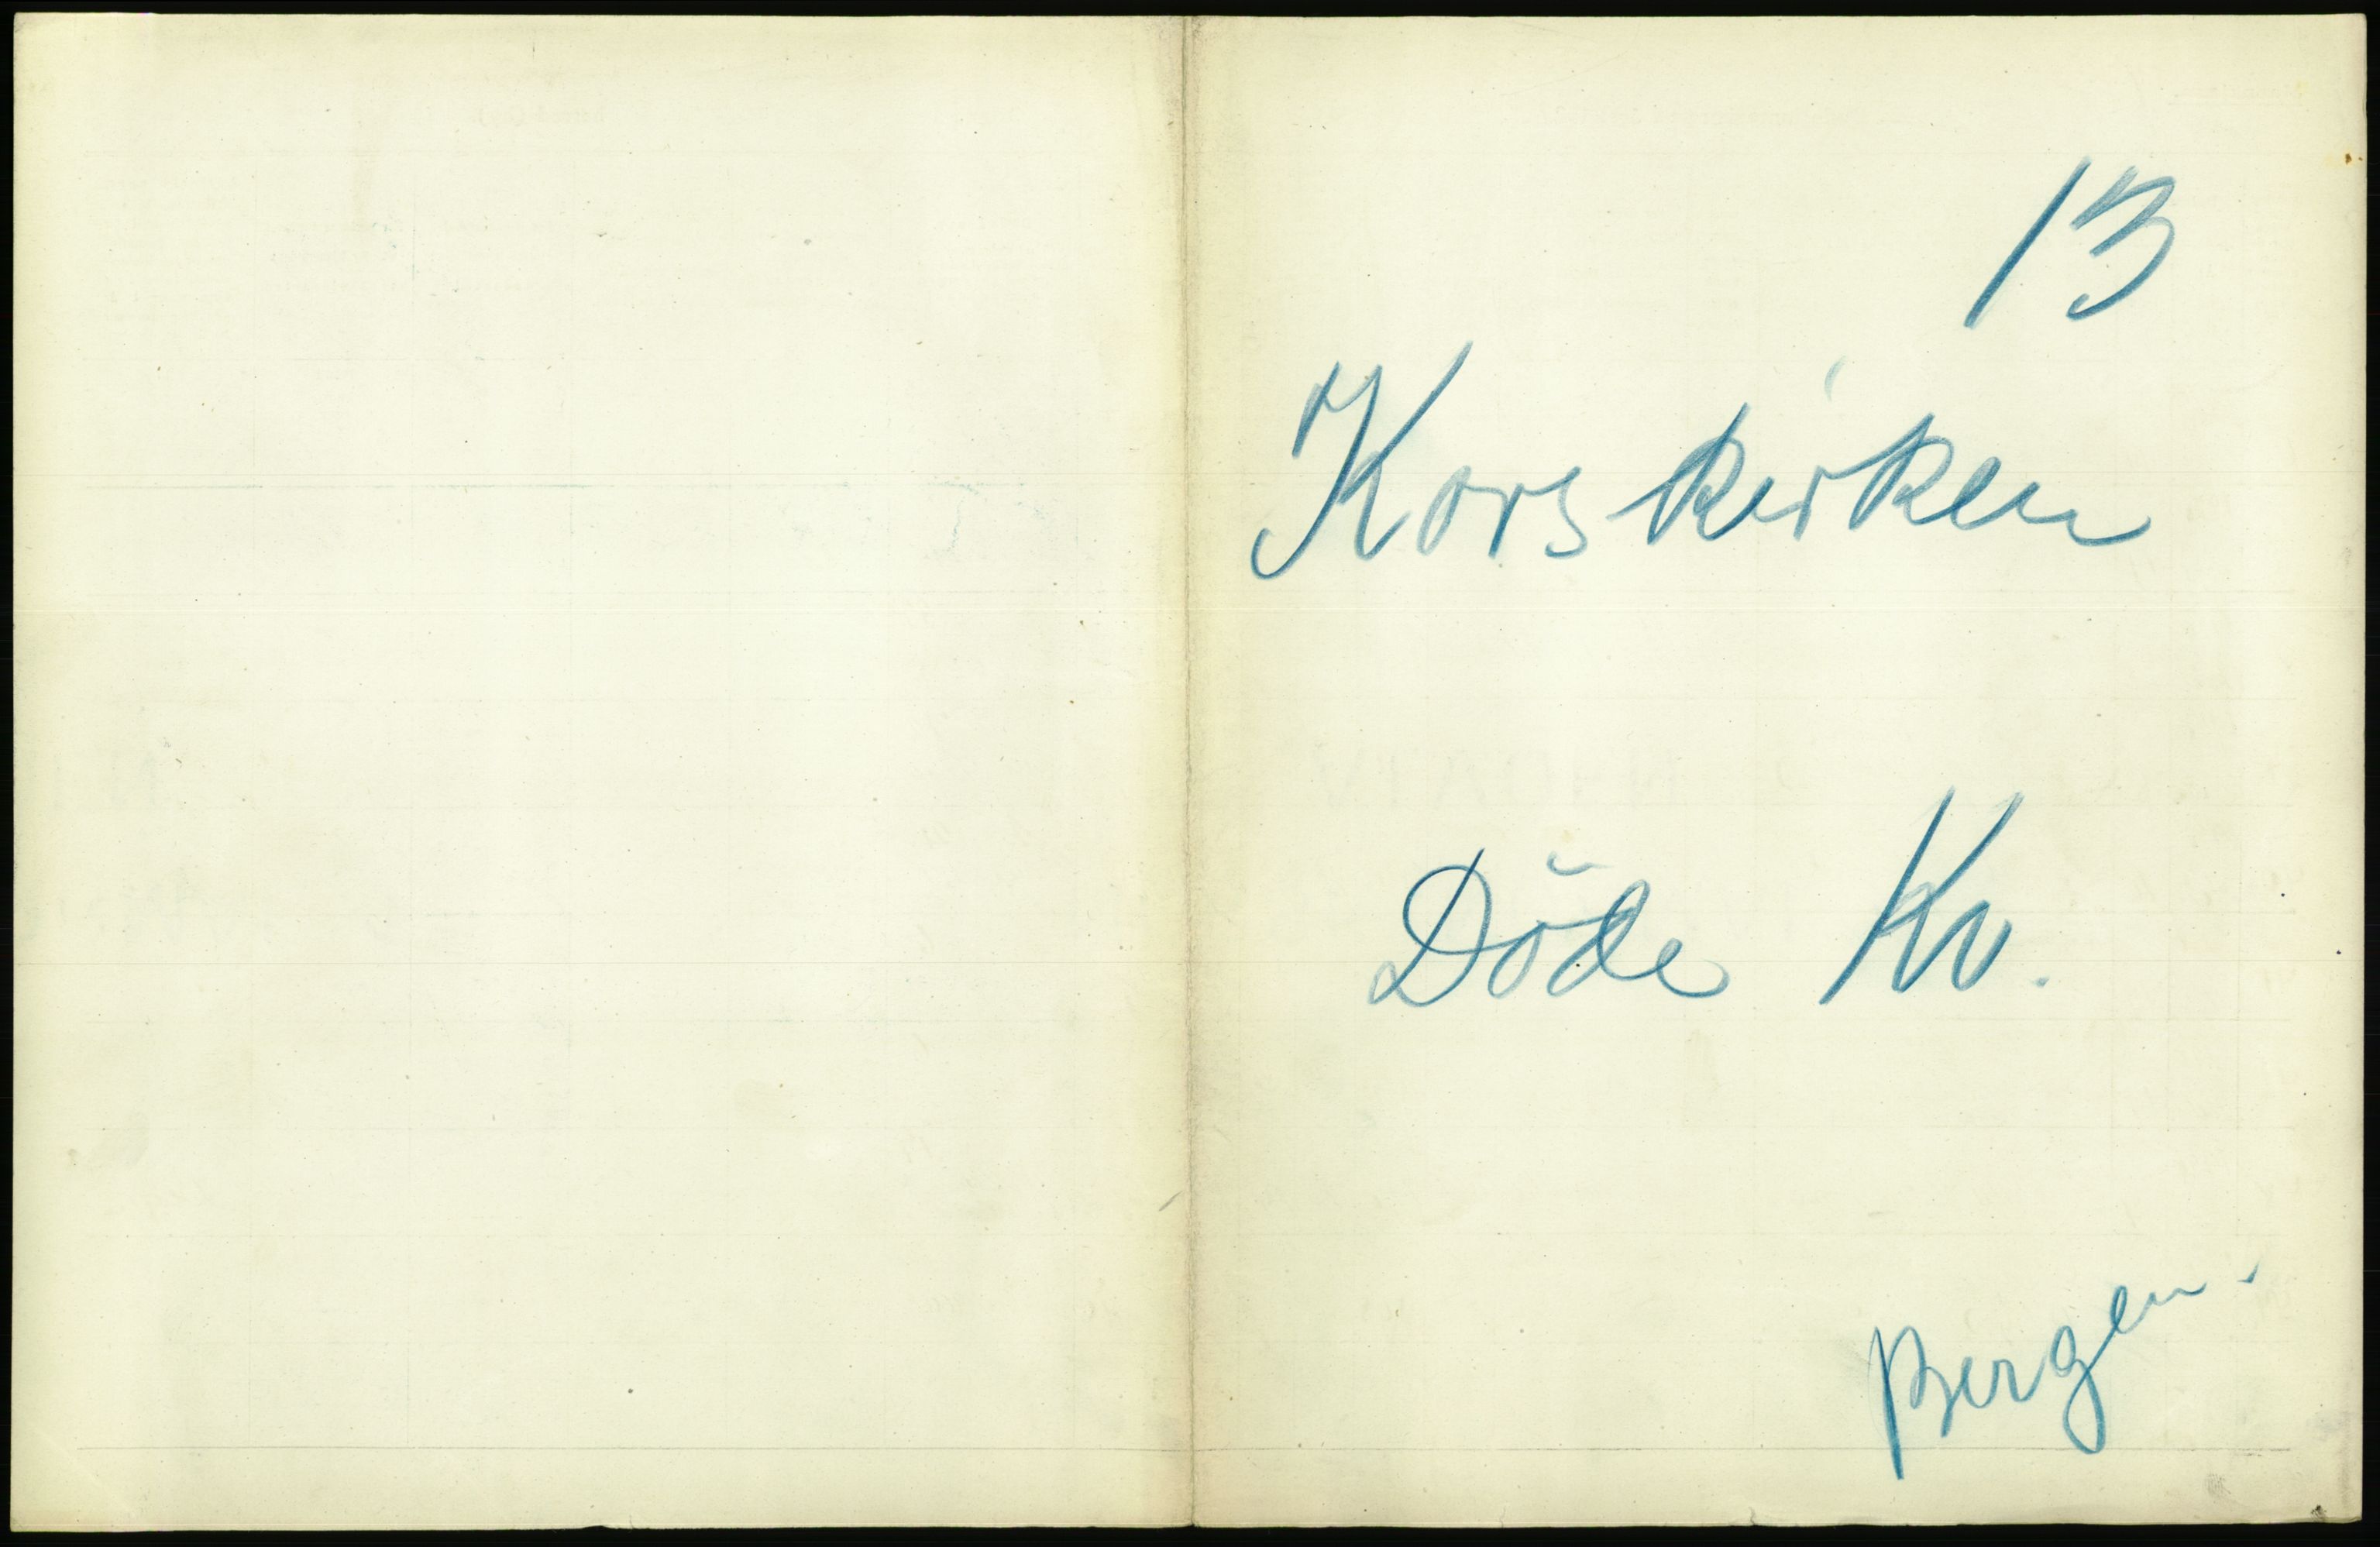 13
Korskirken
Döde Kv.
Bergen.